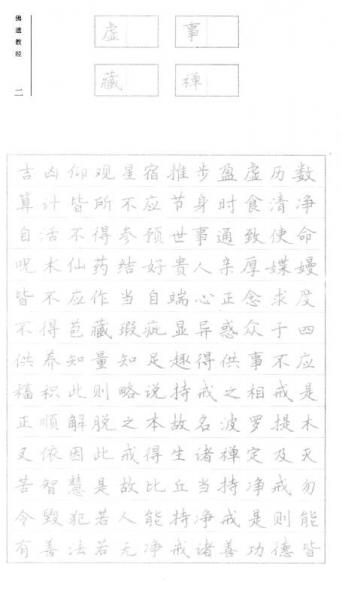 佛遗教经
二
虚
事
藏
禅
吉凶仰观星宿推步盈虚历数
算计皆所不应节身时食清净
自活不得参预世事通致使命
呪术仙药结好贵人亲厚媟嫚
皆不应作当自端心正念求度
不得苞藏瑕疵显异惑众于四
供养知量知足趣得供事不应
稸积此则略说持戒之相戒是
正顺解脱之本故名波罗提木
叉依因此戒得生诸禅定及灭
苦智慧是故比丘当持净戒勿
令毁犯若人能持净戒是则能
有善法若无净戒诸善功德皆